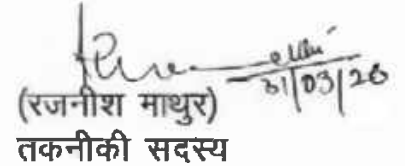 31/03/26
(रजनीश माथुर)
तकनीकी सदस्य